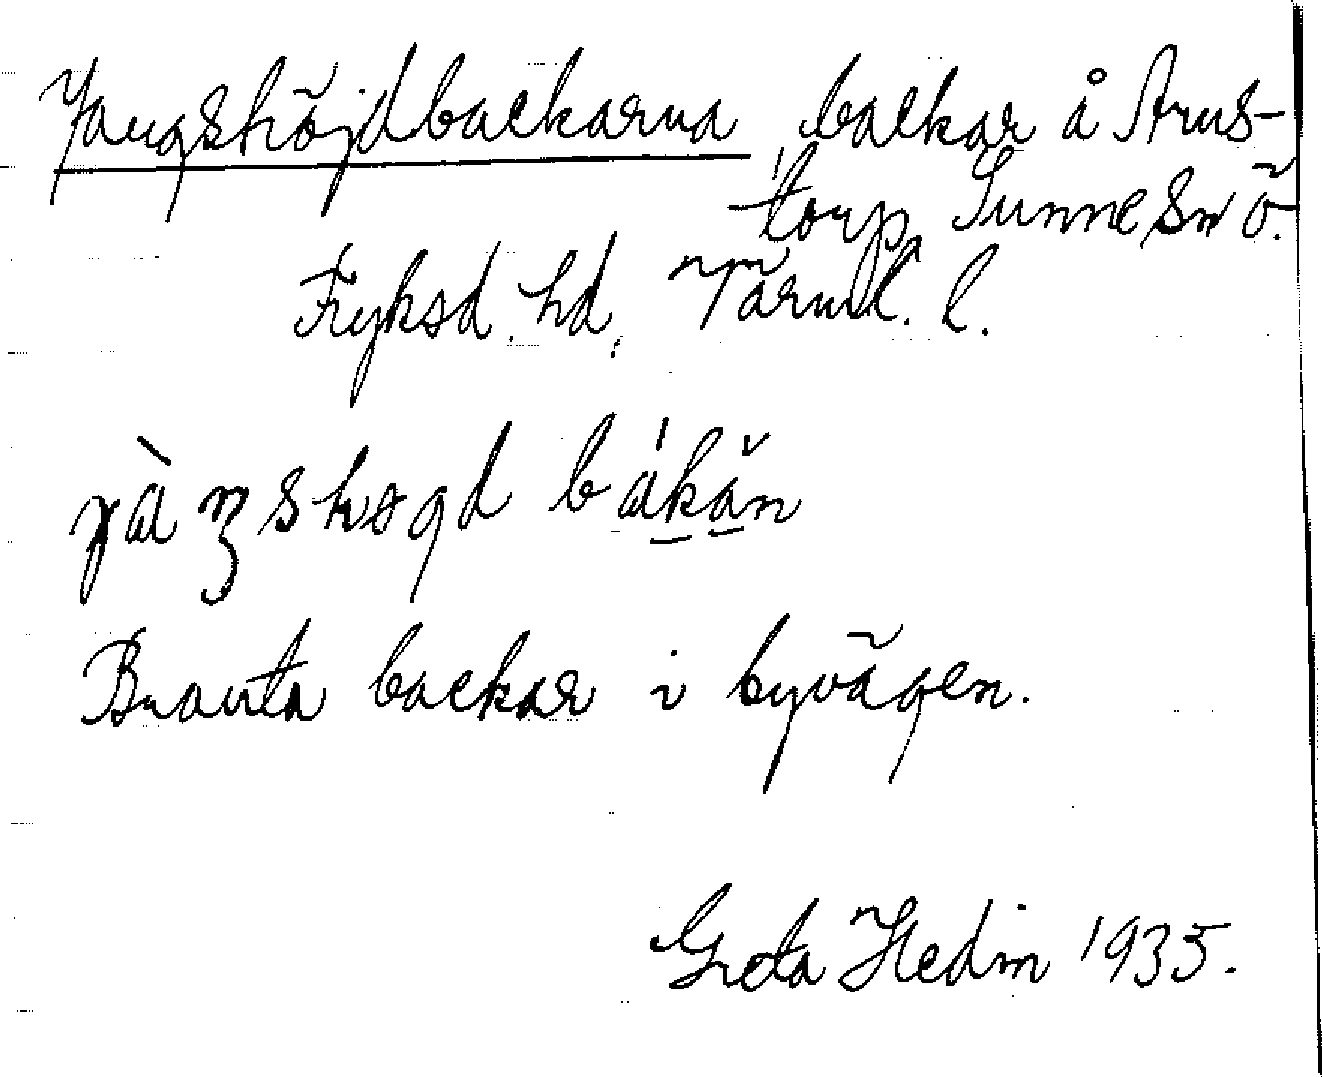 Yangshöjdbackarna, backar å Arns-
torp, Sunne sn ö.
Fryksd. hd, Värml. l.
bákăn
Branta backar i byvägen.
Greta Hedin 1935.